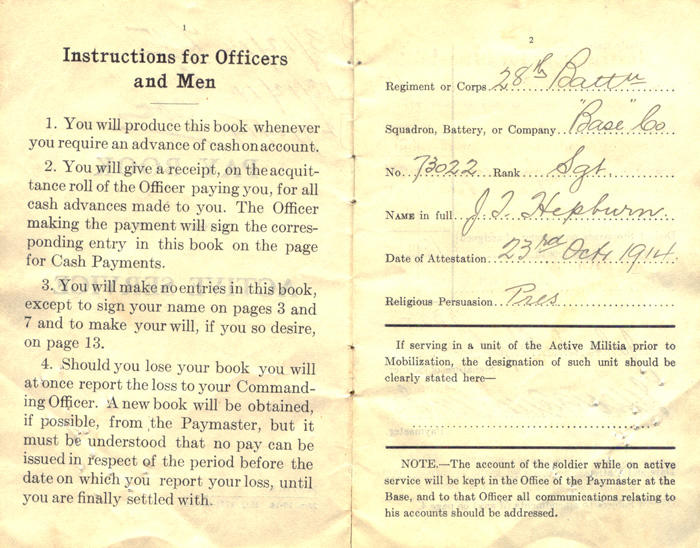 1
Instructions for Officers
and Men
1. You will produce this book whenever
you require an advance of cash on account.
2. You will give a receipt, on the acquit-
tance roll of the Officer paying you, for all
cash advances made to you. The Officer
making the payment will sign the corres-
ponding entry in this book on the page
for Cash Payments.
3. You will make no entries in this book,
except to sign your name on pages 3 and
7 and to make your will, if you so desire,
on page 13.
4. Should you lose your book you will
at once report the loss to your Command-
ing Officer. A new book will be obtained,
if possible, from the Paymaster, but it
must be understood that no pay can be
issued in respect of the period before the
date on which you report your loss, until
you are finally settled with.
2
Regiment or Corps 28th Battn
Squadron, Battery, or Company "Base" Co
No. 73022 Rank Sgt.
NAME in full J. T. Hepburn
Date of Attestation 23rd Oct 1914
Religious Persuasion Pres
If serving in a unit of the Active Militia prior to
Mobilization, the designation of such unit should be
clearly stated here—
NOTE.—The account of the soldier while on active
service will be kept in the Office of the Paymaster at the
Base, and to that Officer all communications relating to
his accounts should be addressed.